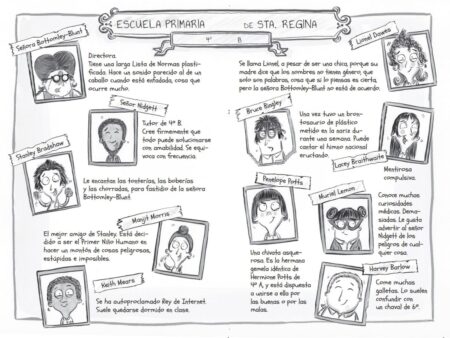 ESCUELA PRIMARIA DE STA. REGINA
4º B
Señora Bottomley-Blunt
Directora.
Tiene una larga Lista de Normas plasti-
ficada. Hace un sonido parecido al de un
caballo cuando está enfadada, cosa que
ocurre mucho.
Señor Nidgett
Tutor de 4º B.
Cree firmemente que
todo puede solucionarse
con amabilidad. Se equi-
voca con frecuencia.
Stanley Bradshaw
Le encantan las tonterías, las boberías
y las chorradas, para fastidio de la señora
Bottomley-Blunt.
Manjit Morris
El mejor amigo de Stanley. Está deci-
dido a ser el Primer Niño Humano en
hacer un montón de cosas peligrosas,
estúpidas e imposibles.
Keith Mears
Se ha autoproclamado Rey de Internet.
Suele quedarse dormido en clase.
Lionel Dawes
Se llama Lionel, a pesar de ser una chica, porque su
madre dice que los nombres no tienen género, que
solo son palabras, cosa que si lo piensas es cierta,
pero la señora Bottomley-Blunt no está de acuerdo.
Bruce Bingley
Una vez tuvo un bron-
tosaurio de plástico
metido en la nariz du-
rante una semana. Puede
cantar el himno nacional
eructando.
Lacey Braithwaite
Mentirosa
compulsiva.
Penelope Potts
Una chivata asque-
rosa. Es la hermana
gemela idéntica de
Hermione Potts de
4º A, y está dispuesta
a unirse a ella por
las buenas o por las
malas.
Muriel Lemon
Conoce muchas
curiosidades
médicas. Dema-
siadas. Le gusta
advertir al señor
Nidgett de los
peligros de cual-
quier cosa.
Harvey Barlow
Come muchas
galletas. Lo suelen
confundir con
un chaval de 6º.